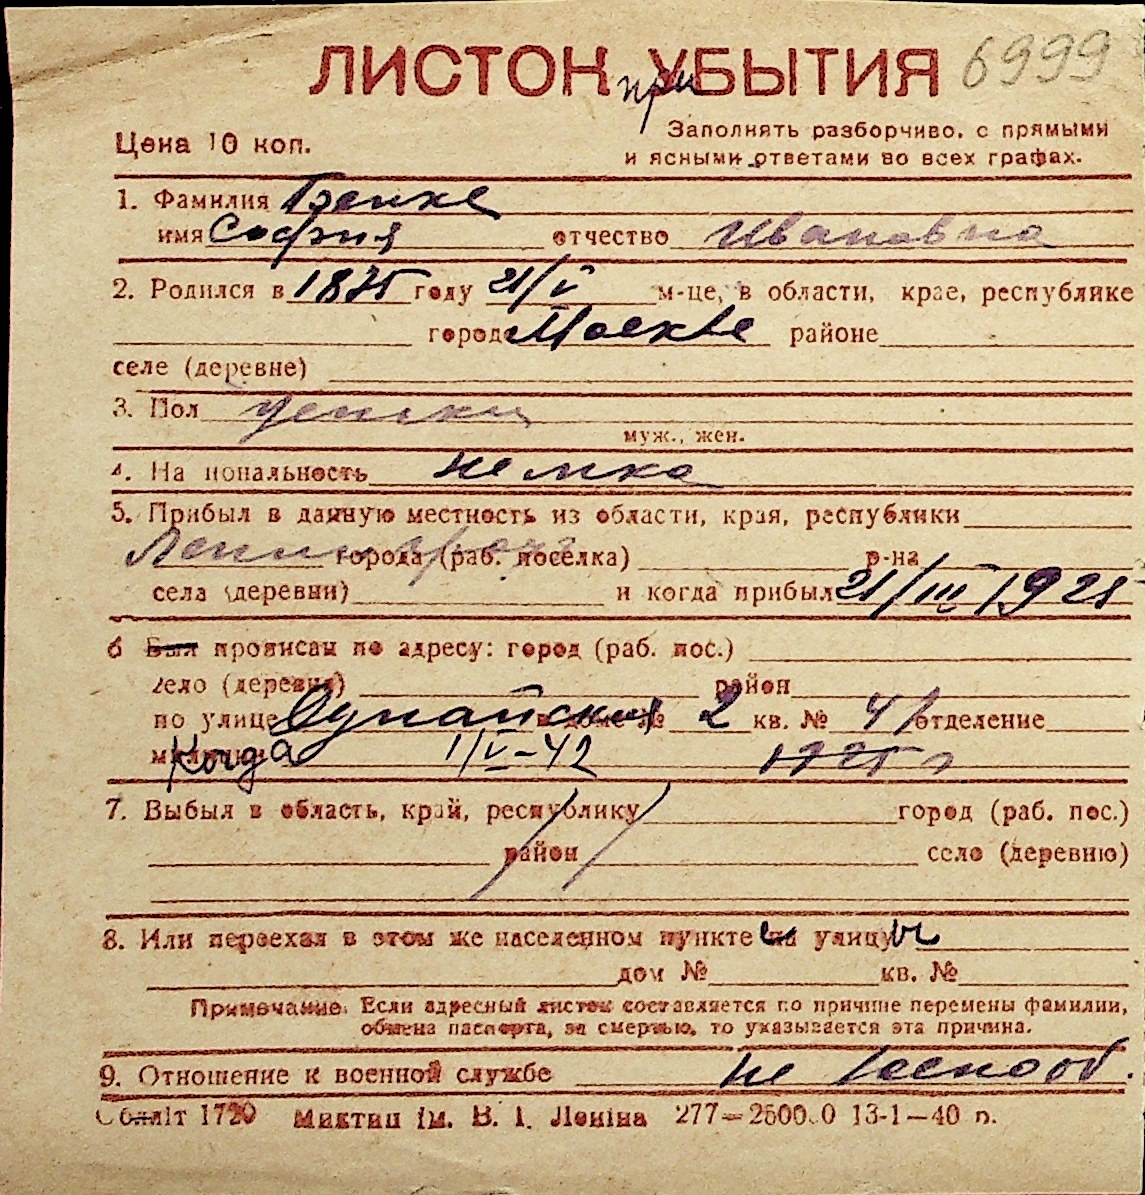 ЛИСТОК УБЫТИЯ 6999
при
Цена 10 коп.
Заполнять разборчиво, с прямыми
и ясными ответами во всех графах.
1. Фамилия
имя София отчество Ивановна
2. Родился в 1875 году 21/V м-це, в области, крае, республике
городе Москве районе
селе (деревне)
3. Пол
муж., жен.
4. На иональность немка
5. Прибыл в данную местность из области, края, республики
Ленинград города (раб. поселка) р-на
села (деревни) и когда прибыл 21/III 1925
6 Был прописан по адресу: город (раб. пос.)
село (деревня) район
по улице Дунайская в доме № 2 кв. № 4 отделение
милиции Когда 1/V-42 1925 г
7. Выбыл в область, край, республику город (раб. пос.)
район село (деревню)
8. Или переехал в этом же населенном пункте на улицу
дом № кв. №
Примечание. Если адресный листок составляется по причине перемены фамилии,
обмена паспорта, за смертью, то указывается эта причина.
9. Отношение к военной службе не военнооб.
Обліт 1720 Миктип ім. В. І. Леніна 277—2500.0 13-1—40 р.